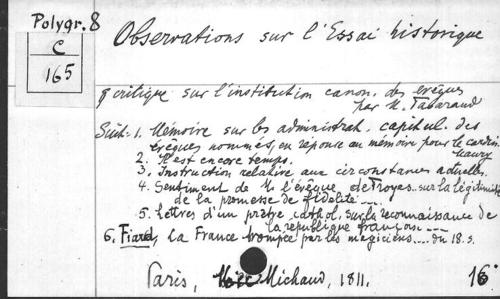 Polygr. 8
C
165
Observations sur l'Essai historique
& critique sur l'institution canon. des évêques
par M. Tabaraud
Suit: 1. Mémoire sur les administrat. capitul. des
évêques nommés, en réponse au mémoire pour le cardin.
Maury
2. Il est encore temps.
3. Instruction relative aux circonstances actuelles.
4. Sentiment de M. l'évêque de Troyes sur la légitimité
de la promesse de fidélité ...
5. Lettres d'un prêtre cathol. sur la reconnaissance de
la république française ...
6. Fiard, La France trompée par les magiciens ... du 18. s.
Paris, Michaud, 1811. 16°